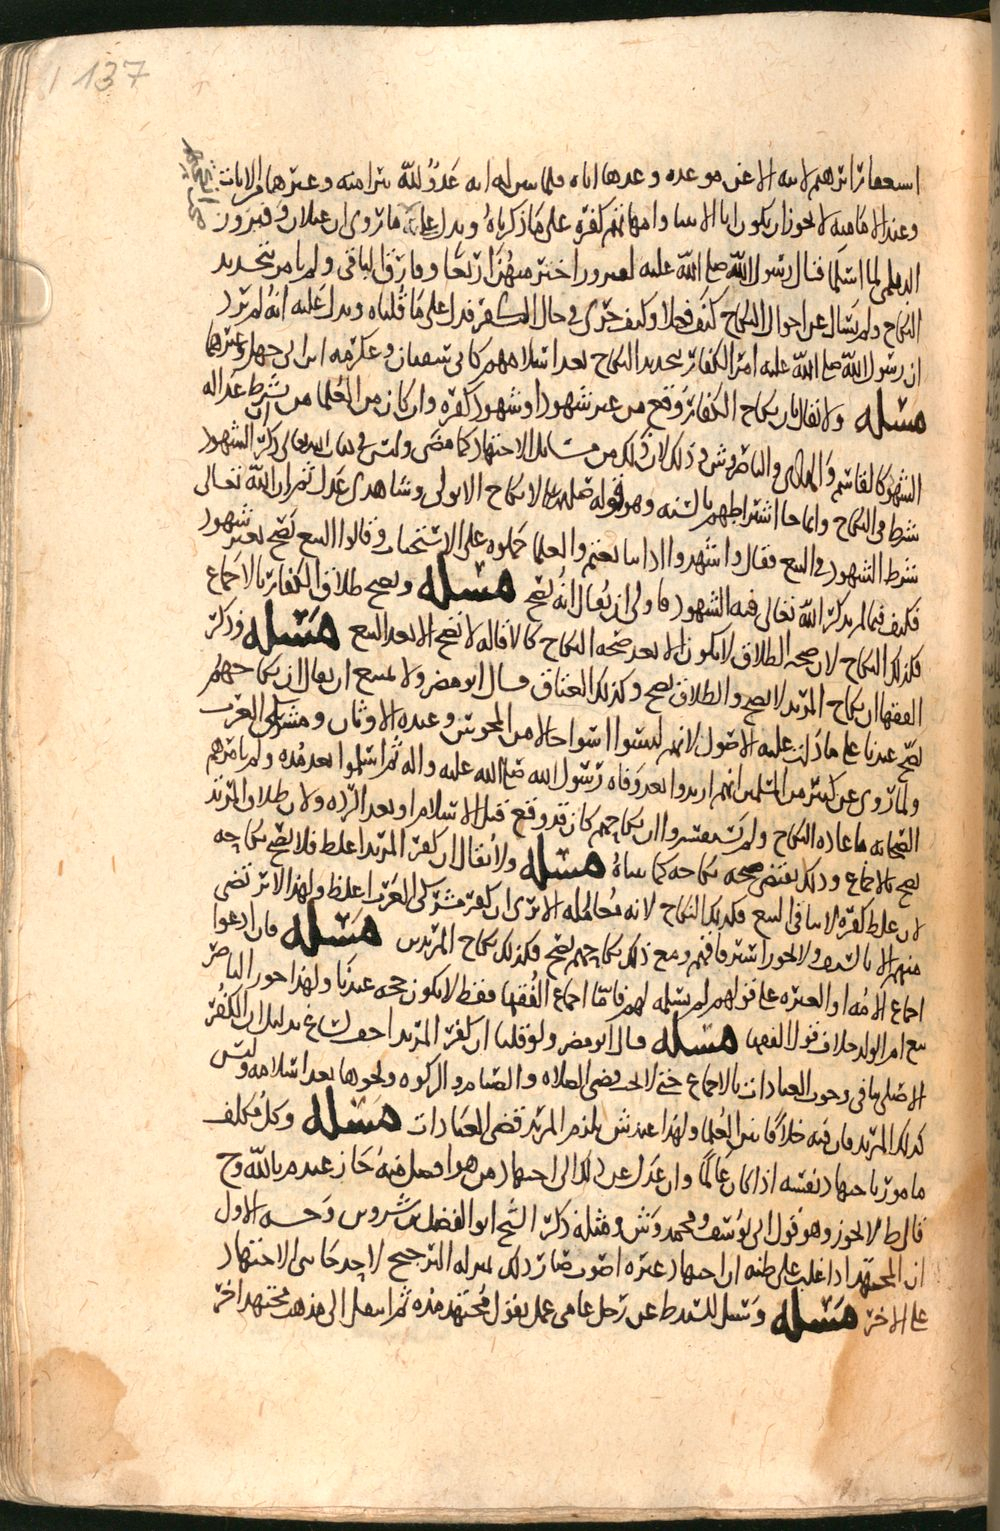 137
استغفار ابرهيم لابيه الا عن موعده وعدها اياه فلما تبين له انه عدو لله تبرا منه وغيرهما من الايات
وعند الاماميه لا يجوز ان يكون ابا الانبيا وامهاتهم كفره على ما ذكرناه ويدل عليه ما روي ان غيلان وفيروز
الديلمي لما اسلما قال رسول الله صلى الله عليه لفيروز اختر منهن اربعا وفارق الباقي ولم يامر بتجديد
النكاح ولم يسال عن احوال النكاح كيف فعلا وكيف جرى في حال الكفر فدل على ما قلناه ويدل عليه انه لم يرد
ان رسول الله صلى الله عليه امر الكفار بتجديد النكاح بعد اسلامهم كابي سفيان وعكرمه ابن ابي جهل وغيرهما
مسله ولا يقال بان نكاح الكفار وقع من غير شهود او شهود كفره وان كان من العلما من يشرط عداله
الشهود كالقاسم والهادي والناصر وش في ذلك لان ذلك من مسايل الاجتهاد كما مضى وليس في كتاب الله تعالى ذكر الشهود
شرط في النكاح وانما اشتراطهم بالسنه وهو قوله صلى الله عليه لا نكاح الا بولي وشاهدي عدل ثم ان الله تعالى
شرط الشهود في البيع فقال واشهدوا اذا تبايعتم والعلما حملوه على الاستحباب وقالوا البيع يصح بغير شهود
فكيف فيما لم يذكر الله تعالى فيه الشهود فاولى ان يقال انه يصح مسله ويصح طلاق الكفار بالاجماع
فكذلك النكاح لان صحه الطلاق لا يكون الا بعد صحه النكاح كالاقاله لا تصح الا بعد البيع مسله وذكر
الفقها ان نكاح المرتد لا يصح والطلاق يصح وكذلك العتاق قال ابو مضر ولا يمتنع ان يقال ان نكاحهم
يصح عندنا على ما دلت عليه الاصول لانهم ليسوا اسوا حالا من المجوس وعبده الاوثان ومشركي العرب
ولما روي عن كثير من المسلمين انهم ارتدوا بعد وفاه رسول الله صلى الله عليه واله ثم اسلموا بعد مده ولم يامرهم
الصحابه باعاده النكاح ولم يستفسروا ان نكاحهم كان قد وقع قبل الاسلام او بعد الرده ولان طلاق المرتد
يصح بالاجماع وذلك يقتضي صحه نكاحه كما بيناه مسله ولا يقال ان كفر المرتد اغلظ فلا يصح نكاحه
لان غلظ كفره لا ينافي البيع فكذلك النكاح لانه معامله الا ترى ان كفر مشركي العرب اغلظ ولهذا لا يرتضى
منهم الا بالسيف ولا يجوز استرقاقهم ومع ذلك نكاحهم يصح فكذلك نكاح المرتدين مسله فان ادعوا
اجماع الامه او العتره على قولهم لم نسلمه لهم فاما اجماع الفقها فقط لا يكون حجه عندنا ولهذا جوز الناصر
بيع ام الولد خلاف قول الفقها مسله قال ابو مضر ولو قلنا ان كفر المرتد اخف لساغ بدليل ان الكفر
الاصلي ينافي وجوب العبادات بالاجماع حتى لا يجب قضى الصلاه والصيام والزكوه ونحوها بعد اسلامه وليس
كذلك المرتد فان فيه خلافا بين العلما ولهذا عند ش يلزم المرتد قضى العبادات مسله وكل مكلف
مامور باجتهاد نفسه اذا كان عالما وان عدل عن ذلك الى اجتهاد من هو افضل منه جاز عند م بالله وح
قال ط لا يجوز وهو قول ابي يوسف ومحمد وش ومثله ذكر الشيخ ابو الفضل بن شروين وجه الاول
ان المجتهد اذا غلب على ظنه ان اجتهاد غيره اصوب صار ذلك بمنزله الترجيح لاحد جانبي الاجتهاد
على الاخر مسله وسيل السيد ط عن رجل عامي عمل بقول مجتهد مده ثم انتقل الى مذهب مجتهد اخر